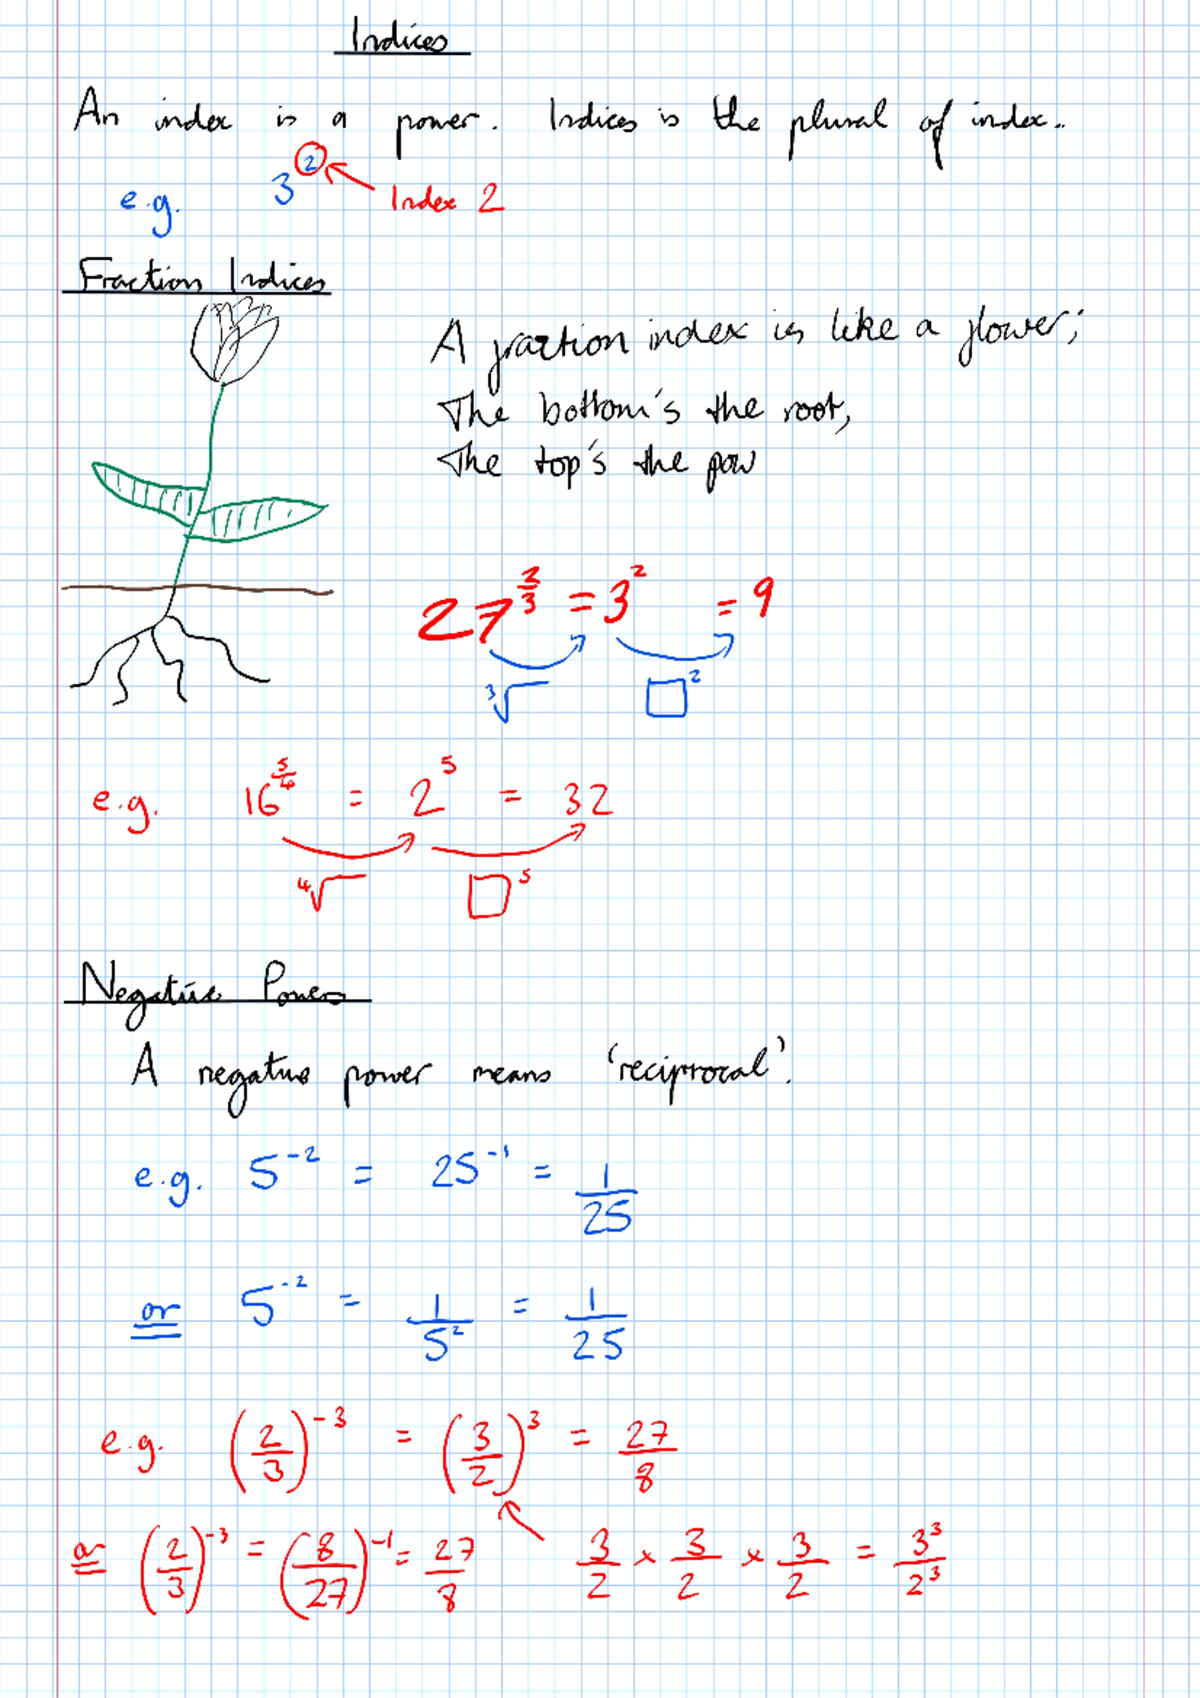 Indices
An index is a power. Indices is the plural of index.
e.g. 3² Index 2
Fraction Indices
A fraction index is like a flower;
The bottom's the root,
The top's the pow
27^(2/3) = 3² = 9
³√ □²
e.g. 16^(5/4) = 2⁵ = 32
⁴√ □⁵
Negative Powers
A negative power means 'reciprocal'.
e.g. 5⁻² = 25⁻¹ = 1/25
or 5⁻² = 1/5² = 1/25
e.g. (2/3)⁻³ = (3/2)³ = 27/8
or (2/3)⁻³ = (8/27)⁻¹ = 27/8 3/2 × 3/2 × 3/2 = 3³/2³